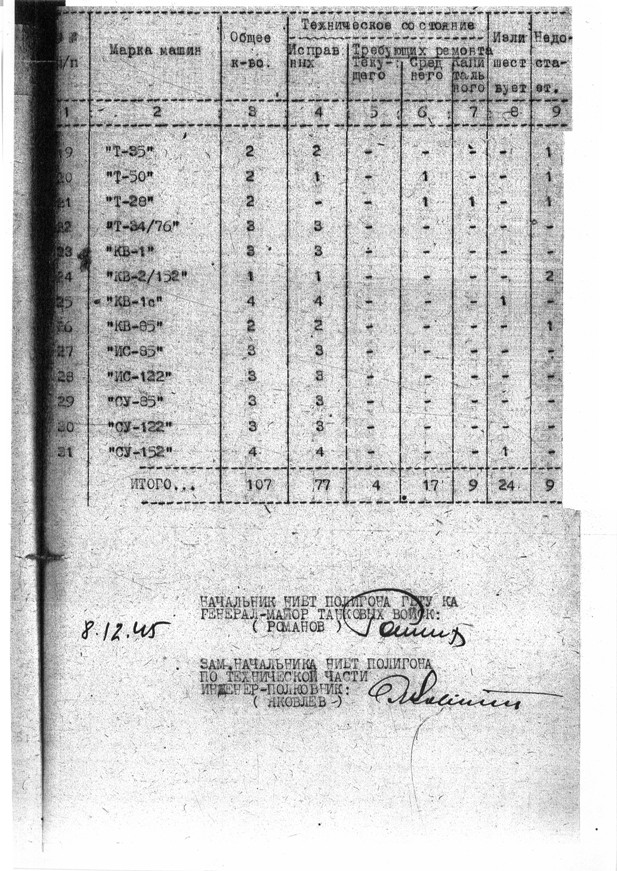 Техническое состояние
№ № Марка машин Общее Исправ Требующих ремонта Изли Недо-
п/п к-во. ных Теку- Сред Капи шест ста-
щего него таль вует ет.
ного
1 2 3 4 5 6 7 8 9
19 "Т-35" 2 2 - - - - 1
20 "Т-50" 2 1 - 1 - - 1
21 "Т-28" 2 - - 1 1 - 1
22 "Т-34/76" 3 3 - - - - -
23 "КВ-1" 3 3 - - - - -
24 "КВ-2/152" 1 1 - - - - 2
25 "КВ-1с" 4 4 - - - 1 -
26 "КВ-85" 2 2 - - - - 1
27 "ИС-85" 3 3 - - - - -
28 "ИС-122" 3 3 - - - - -
29 "СУ-85" 3 3 - - - - -
30 "СУ-122" 3 3 - - - - -
31 "СУ-152" 4 4 - - - 1 -
ИТОГО... 107 77 4 17 9 24 9
НАЧАЛЬНИК НИБТ ПОЛИГОНА ГБТУ КА
ГЕНЕРАЛ-МАЙОР ТАНКОВЫХ ВОЙСК:
( РОМАНОВ )
8.12.45
ЗАМ.НАЧАЛЬНИКА НИБТ ПОЛИГОНА
ПО ТЕХНИЧЕСКОЙ ЧАСТИ
ИНЖЕНЕР-ПОЛКОВНИК:
( ЯКОВЛЕВ )